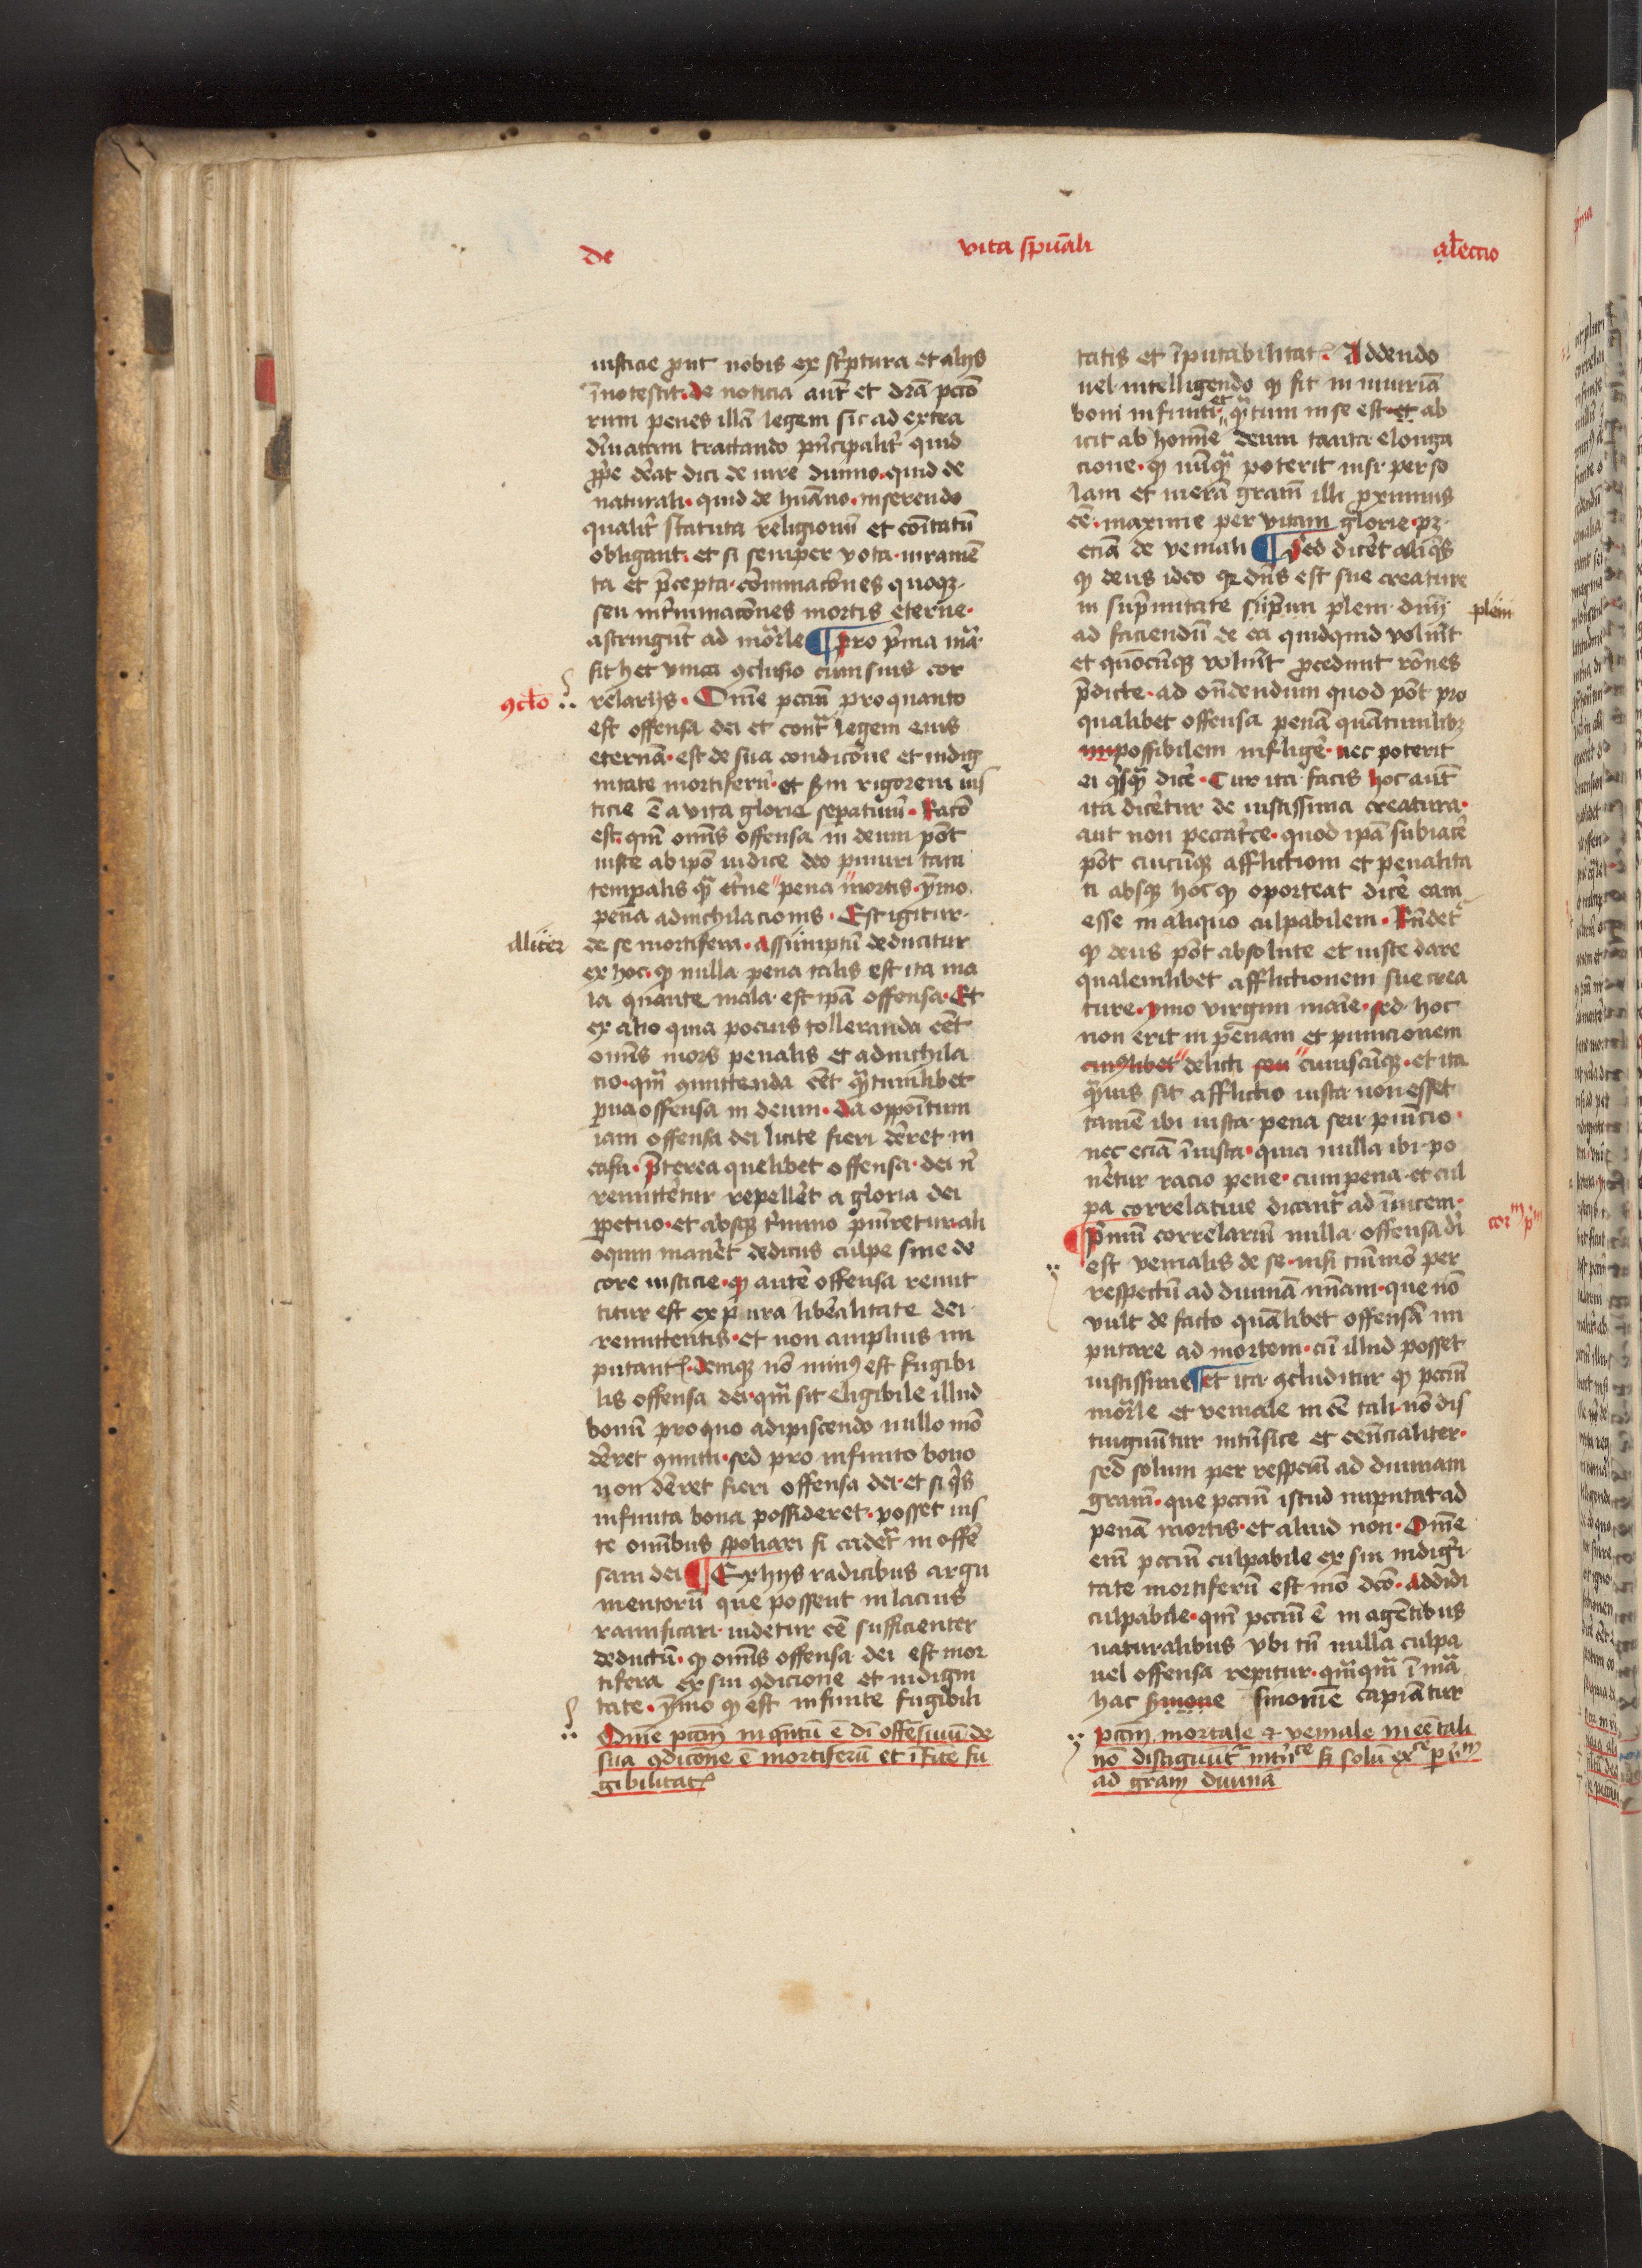 de
vita spũali
a lectio
iusticie ꝓut nobis ex scͥptura et alijs
ĩnotescit. de noticia aut̃ et dr̃a pctõ
rum penes illã legem sic ad extra
diͥuatam tractando pͥncipalit̃ quid
ꝓpͥe dẽat dici de iure diuino. quid de
naturali. quid de huãno. inserendo
qualit̃ statuta religionũ et cõitatũ
obligant. et si semper vota. iuramẽ
ta et p̃cepta. cõminacõnes quoqꝫ.
seu int̃minacõnes mortis eterne.
astringũt ad mor̃le ¶ pro pͥma mã.
sit hec vnica ꝯclusio cum suis cor
ꝯclõ
relarijs. Om̃e pctm̃ pro quanto
est offensa dei et contͣ legem eius
eternã. est de sua condicõne et indig
nitate mortiferũ. et scdm rigorem ius
ticie ẽ a vita glorie sepatiuũ. Racõ
est. qm̃ om̃s offensa in deum põt
iuste ab ipõ iudice deo puniri tam
temporalis qͣ et̃ne pena mortis. ymo
pena adnichilacionis. Est igitur
aliter
de se mortifera. assumptũ deducitur
ex hoc. ꝙ nulla pena talis est ita ma
la quante mala est ipã offensa. Et
ex alio quia pocius tolleranda eẽt
om̃s mors penalis et adnichila
cio. qm̃ ꝯmittenda eẽt qͣtumlibet
ꝑua offensa in deum. da oppoĩtum
iam offensa dei licite fieri dẽret in
casu. p̃terea quelibet offensa dei ñ
remitteretur repelleret a gloria dei
ꝑpetuo. et absqꝫ t̃mino puniretur. ali
oquin maneret dedecus culpe sine de
core iusticie. ꝙ autẽ offensa remit
titur est ex pura liberalitate dei
remittentis. et non amplius im
putant̃. deniqꝫ nõ minꝰ est fugibi
lis offensa dei. qm̃ sit eligibile illud
bonũ pro quo adipiscendo nullo mõ
dẽret ꝯmitti. sed pro infinito bono
non dẽret fieri offensa dei. et si qͥs
infinita bona possideret. posset ius
te om̃ibus spoliari si caderet̃ in offẽ
sam dei ¶ Ex hijs radicibus argu
mentorũ que possent in lacius
ramificari. uidetur eẽ sufficienter
deductũ. ꝙ om̃s offensa dei est mor
tifera ex sui ꝯdicione et indigni
tate. ymo ꝙ est infinite fugibili
Om̃e pctm̃ in qntũ ẽ dei offẽsiuũ de
sua ꝯdicõne ẽ mortiferũ et ĩfĩte fu
gibilitat̃
tatis et ĩputabilitat̃. Addendo
uel intelligendo ꝙ fit in iniuriã
boni infiniti. et qͣtum in se est. et ab
icit ab homine deum tanta elonga
cione. ꝙ nũqͣ poterit nisi per so
lam et merã graciã illi proximus
eẽ. maxime per vitam glorie. pꝫ.
eciã de veniali ¶ Sed diceret aliqͥs
ꝙ deus ideo qꝛ dñs est sue creature
in sup̃mitate supͥmi plem dnij
plem
ad faciendũ de ea quidquid voluerit
et quocũqꝫ voluerit procedunt rõnes
p̃dicte. ad oñdendum quod põt pro
qualibet offensa penã quãtumlibꝫ
impossibilem infligere. nec poterit
ei qͥsqͣ dicere. Cur ita facis hoc aut̃
ita diceretur de iustissima creatura.
aut non peccatͥce. quod ipã subiacere
põt cuicũqꝫ afflictioni et penalita
ti absqꝫ hoc ꝙ oporteat dicere eam
esse in aliquo culpabilem. Rñdet̃
ꝙ deus põt absolute et iuste dare
qualemlibet afflictionem sue crea
ture. ymo virgini marie. sed hoc
non erit in penam et punicionem
cuiꝰlibet delicti seu cuiuscũqꝫ. et ita
qͣuis sit afflictio iusta non esset
tamẽ ibi iusta pena seu punicio.
nec eciã ĩiusta. quia nulla ibi po
neretur racio pene. cum pena et cul
pa correlatiue dicant̃ ad ĩuicem.
corᵐ pͫ
¶ Pͥmũ correlariũ nulla offensa dei
est venialis de se. nisi tm̃mõ per
respectũ ad diuinã mĩam. que nõ
vult de facto quãlibet offensã im
putare ad mortem. cũ illud posset
iustissime ¶ et ita ꝯcluditur ꝙ pctm̃
mor̃le et veniale in eẽ tali. nõ dis
tinguũtur intrĩsice et eẽncialiter.
sed solum per respectũ ad diuinam
graciã. que pctm̃ istud imputat ad
penã mortis. et aliud non. Om̃e
em̃ pctm̃ culpabile ex sui indigni
tate mortiferũ est mõ dcõ. addidi
culpabile. qm̃ pctm̃ ẽ in agẽtibus
naturalibus vbi tñ nulla culpa
uel offensa repitur. qm̃qͣ ĩ mã
hac sinonime capiãtur
pctm̃ mortale ⁊ veniale in eẽ tali
nõ distĩguũt̃ intriͫce sꝫ solũ exͨe p rm
ad gram̃ diuinã